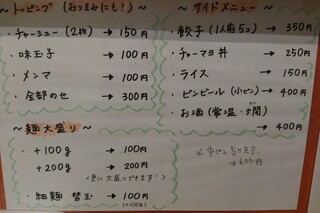 ～トッピング (おつまみにも!)～
・チャーシュー (2枚) → 150円
・味玉子 → 100円
・メンマ → 100円
・全部のせ → 300円
～麺大盛り～
・+100g → 100円
・+200g → 200円
(更に大盛りできます!)
・細麺 替玉 → 100円
(+100g)
～サイドメニュー～
・餃子 (1人前5コ) → 350円
・チャーマヨ丼 → 250円
・ライス → 150円
・ビンビール (小ビン) → 400円
・お酒 (常温・燗)
→ 400円
※中ビンあります。
→ 600円